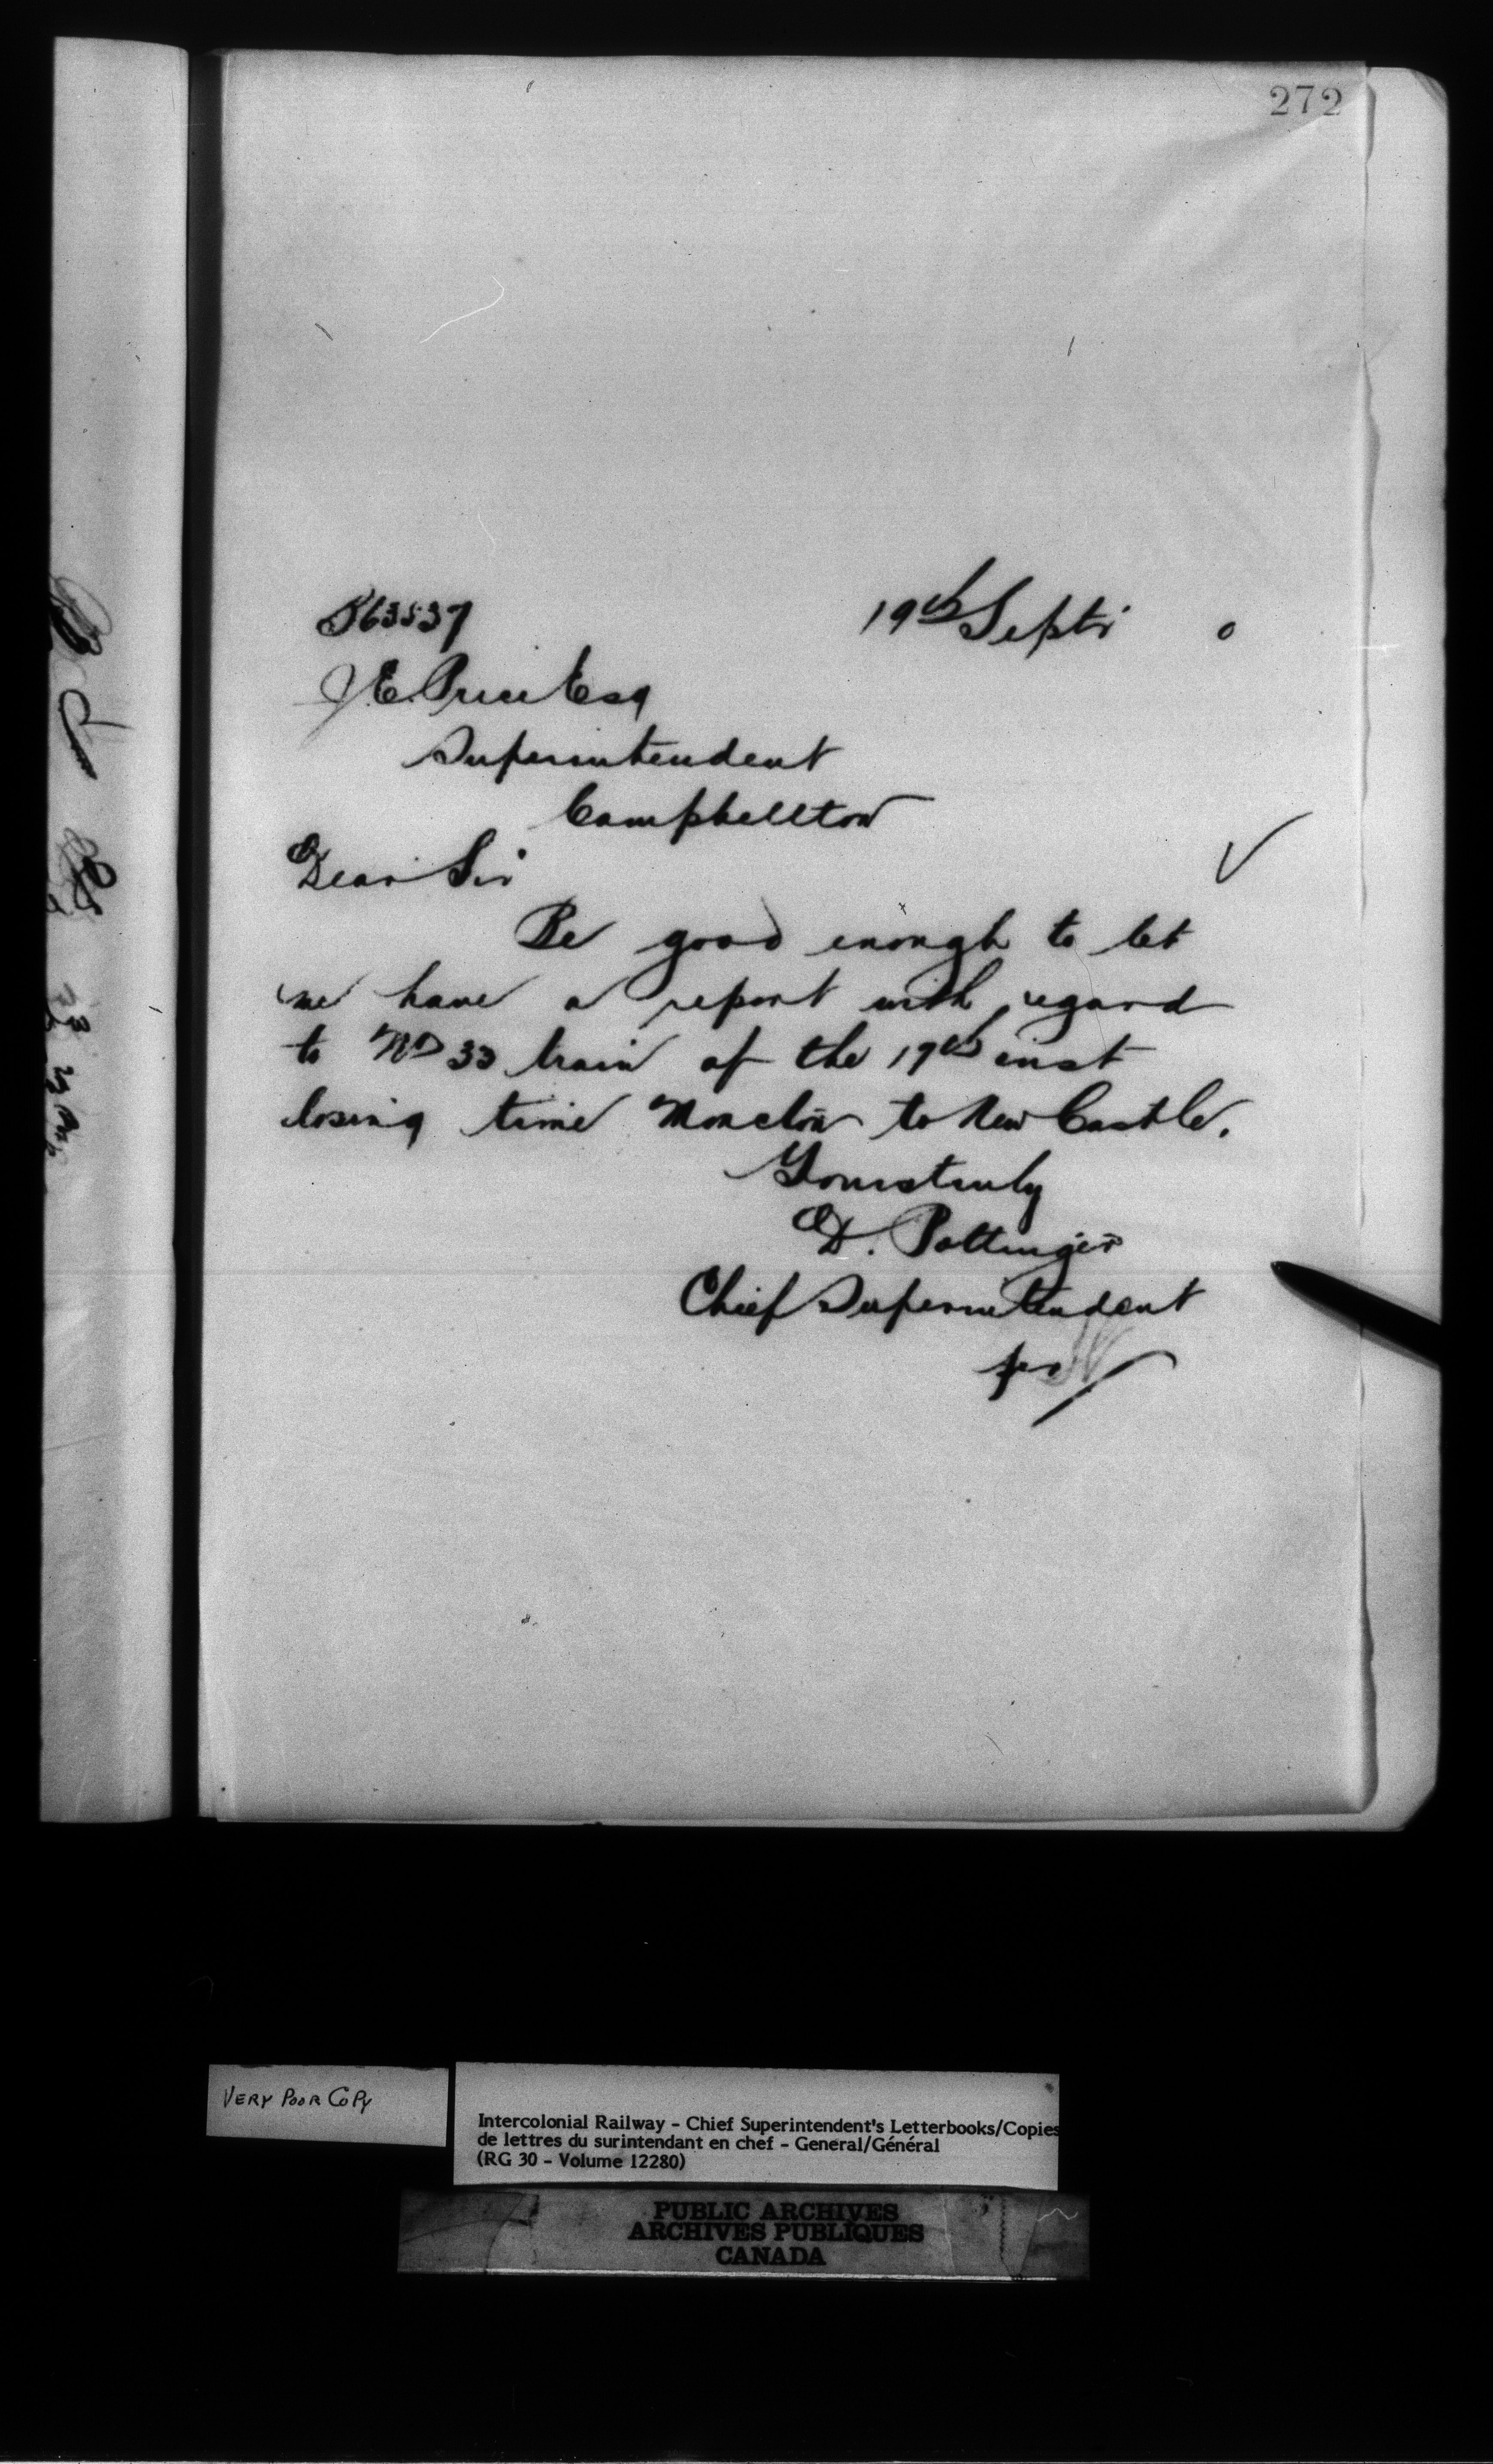 272
B63537
19th Septr 0
J.E. Price Esq
Superintendent
Campbellton
Dear Sir
Be good enough to let
me have a report with regard
to No 33 train of the 17th inst
losing time Moncton to New Castle.
Yours truly
D. Pottinger
Chief Superintendent
per
VERY POOR COPY
Intercolonial Railway - Chief Superintendent's Letterbooks/Copies
de lettres du surintendant en chef - General/Général
(RG 30 - Volume 12280)
PUBLIC ARCHIVES
ARCHIVES PUBLIQUES
CANADA